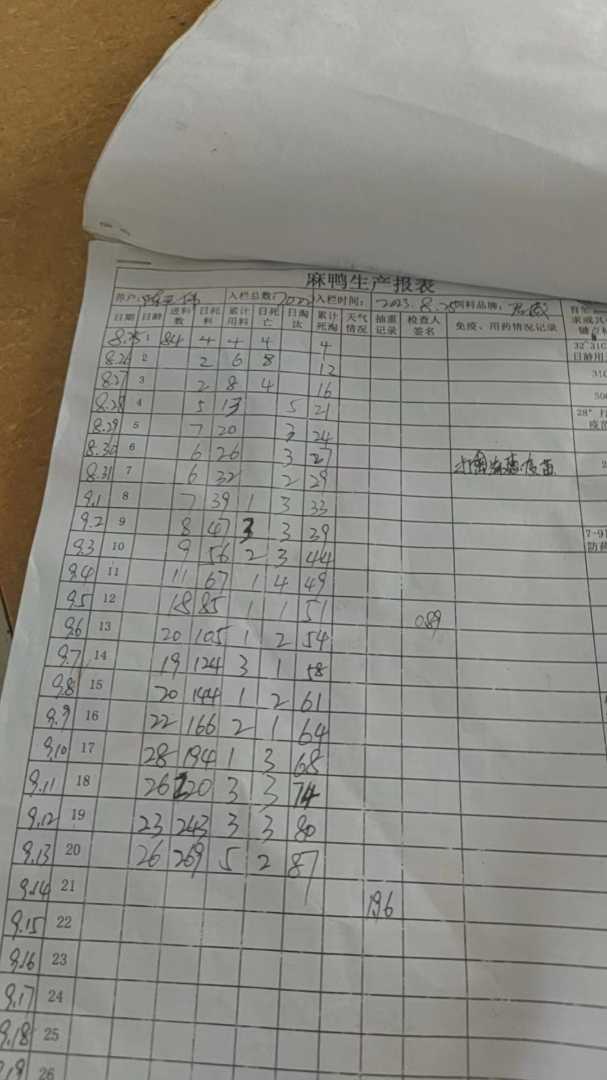 麻鸭生产报表
养户: 入栏总数: 入栏时间: 2023.8.25 饲料品牌:
日期 日龄 进料数 日耗料 累计用料 日死亡 日淘汰 累计死淘 天气情况 抽重记录 检查人签名 免疫、用药情况记录
8.25 1 84 4 4 4 4
8.26 2 2 6 8 12
8.27 3 2 8 4 16
8.28 4 5 13 5 21
8.29 5 7 20 3 24
8.30 6 6 26 3 27
8.31 7 6 32 2 29
9.1 8 7 39 1 3 33
9.2 9 8 47 3 3 39
9.3 10 9 56 2 3 44
9.4 11 11 67 1 4 49
9.5 12 18 85 1 1 51
9.6 13 20 105 1 2 54 089
9.7 14 19 124 3 1 58
9.8 15 20 144 1 2 61
9.9 16 22 166 2 1 64
9.10 17 28 194 1 3 68
9.11 18 26 220 3 3 74
9.12 19 23 243 3 3 80
9.13 20 26 269 5 2 87
9.14 21 196
9.15 22
9.16 23
9.17 24
9.18 25
26